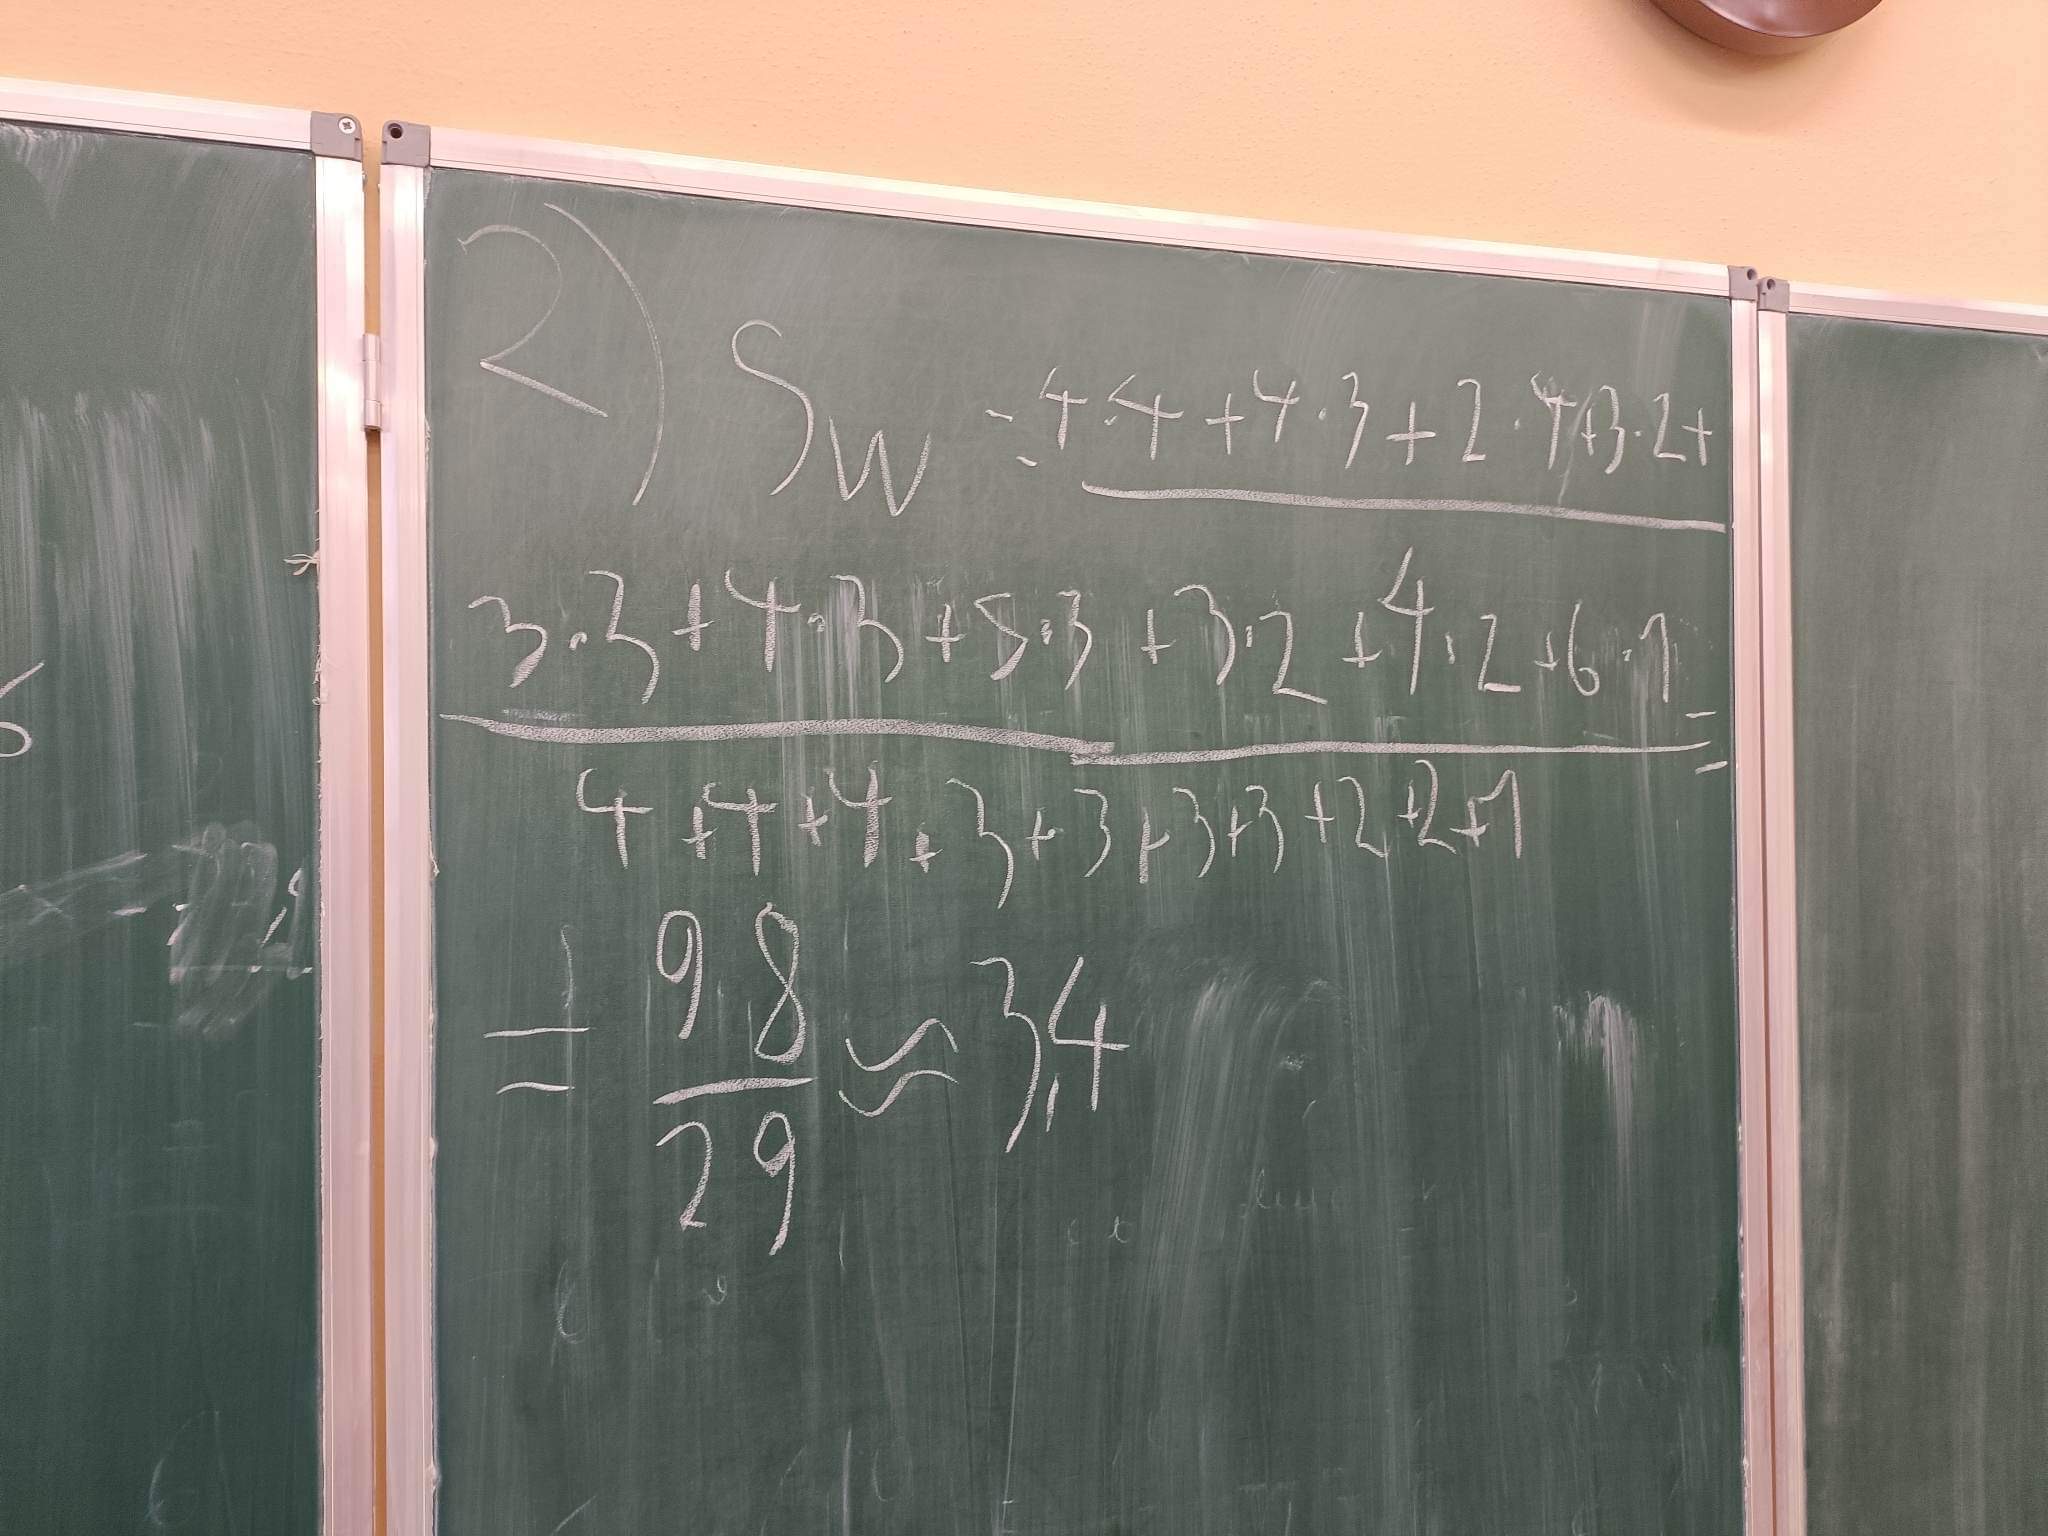 2) S_W = 4·4+4·3+2·4+3·2+
3·3+4·3+5·3+3·2+4·2+6·1 =
4+4+4+3+3+3+3+2+2+1
= 98/29 ≈ 3,4
6